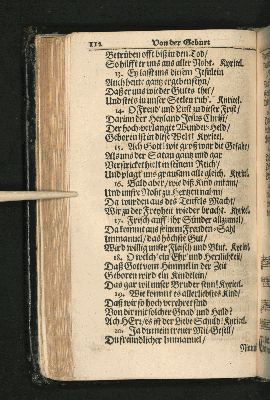 112. Von der Geburt
Betrüben offt biß in den Tod/
So hilfft er uns aus aller Noht. Kyriel.
13. Ey lasst uns diesem Jesulein
Auch heute gantz ergeben seyn/
Daß er uns wieder Gutes thu/
Und stets in unser Seelen ruh'. Kyriel.
14. O Freud' und Lust zu dieser Frist/
Darinn der Heyland Jesus Christ/
Der hochverlangte Wunder-Held/
Gebohren ist in diese Welt! Kyriel.
15. Ach Gott! wie groß war die Gefahr/
Als uns der Satan gantz und gar
Verstricket hielt in seinem Reich/
Und plagt' uns grausam alle gleich. Kyriel.
16. Bald aber/ wos diß Kind vernam/
Und unsre Noht zu Hertzen nahm/
Da wurden aus des Teufels Macht/
Wir zu der Freyheit wieder bracht. Kyriel.
17. Frisch auff/ ihr Sünder allzumal/
Da kommt aus seinem Freuden-Sahl
Immanuel/ das höchste Gut/
Ward willig unser Fleisch und Blut. Kyriel.
18. O welch' ein Ehr' und Herrlichkeit/
Daß Gott vom Himmel in der Zeit
Geboren wird ein Kindelein/
Das gar wil unser Bruder seyn! Kyriel.
19. Wie kommt es allerliebstes Kind/
Daß wir so hoch verehret sind
Von dir mit solcher Gnad' und Huld?
Ach HErr/ es ist der Liebe Schuld! Kyriel.
20. Ja du mein treuer Mit-Gesell/
Du freundlicher Immanuel/